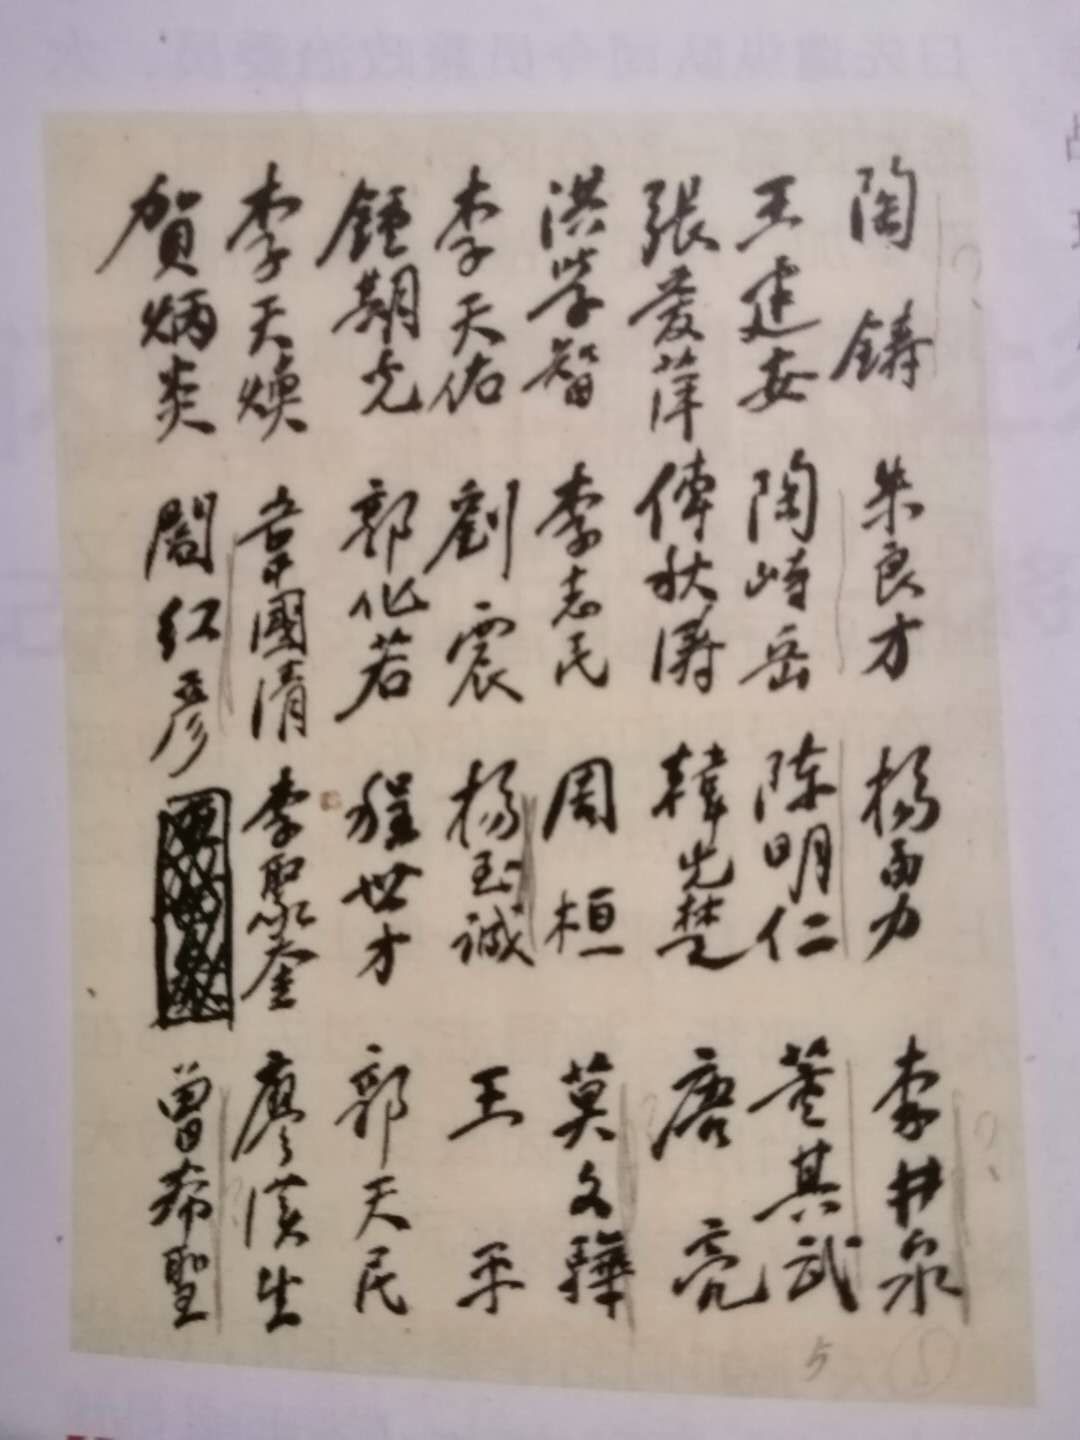 陶鑄 朱良才 楊勇 李井泉
王建安 陶峙岳 陈明仁 董其武
張爱萍 傅秋濤 韓先楚 唐亮
洪学智 李志民 周桓 莫文驊
李天佑 劉震 楊至誠 王平
鍾期光 郭化若 程世才 郭天民
李天焕 韋國清 李聚奎 廖漢生
賀炳炎 閻红彦 曾希聖
5